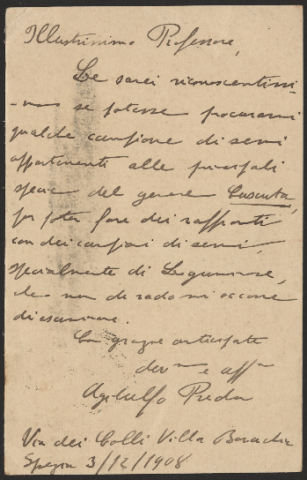 Illustrissimo Professore,
Le sarei riconoscentissi-
-mo se potesse procurarmi
qualche campione di semi
appartenenti alle principali
specie del genere Cuscuta,
per poter fare dei raffronti
con dei campioni di semi,
specialmente di Leguminose,
che non di rado mi occorre
di esaminare.
Con grazie anticipate
dev.mo e aff.mo
Agilulfo Preda
Via dei Colli Villa
Spezia 3/12/1908